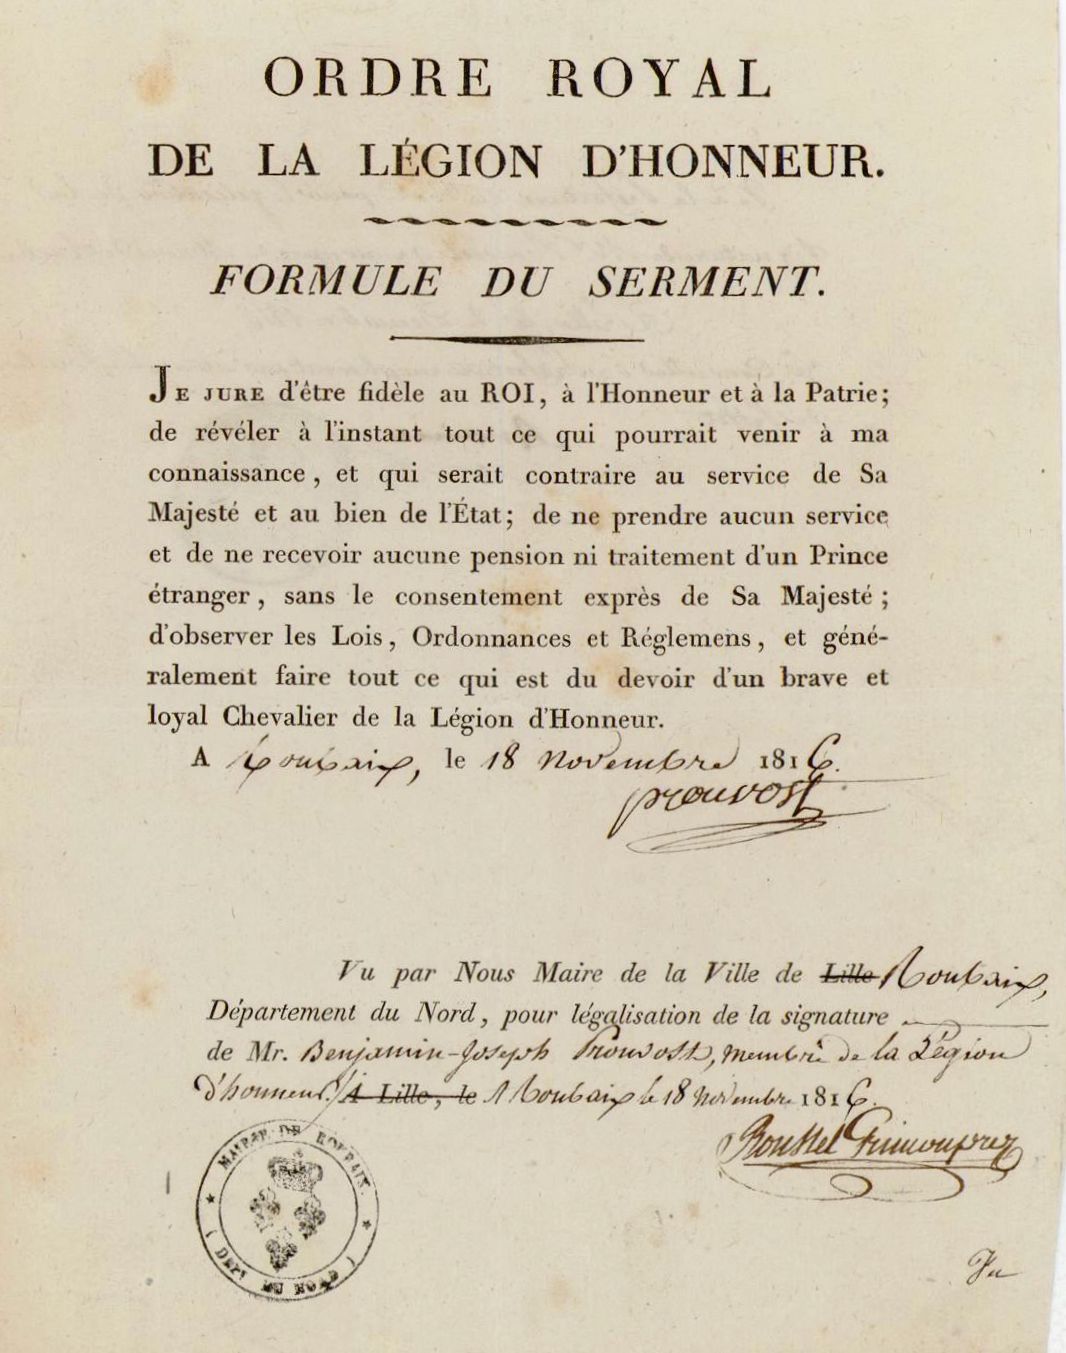 ORDRE ROYAL
DE LA LÉGION D'HONNEUR.
FORMULE DU SERMENT.
JE JURE d'être fidèle au ROI, à l'Honneur et à la Patrie;
de révéler à l'instant tout ce qui pourrait venir à ma
connaissance, et qui serait contraire au service de Sa
Majesté et au bien de l'État; de ne prendre aucun service
et de ne recevoir aucune pension ni traitement d'un Prince
étranger, sans le consentement exprès de Sa Majesté;
d'observer les Lois, Ordonnances et Réglemens, et géné-
ralement faire tout ce qui est du devoir d'un brave et
loyal Chevalier de la Légion d'Honneur.
A Roubaix, le 18 Novembre 1816.
prouvost
Vu par Nous Maire de la Ville de Lille Roubaix,
Département du Nord, pour légalisation de la signature
de Mr. Benjamin-Joseph Prouvost, membre de la Légion
d'honneur. A Lille, le A Roubaix le 18 Novembre 1816.
Roussel Grimonprez
MAIRIE DE ROUBAIX
(DEPT DU NORD)